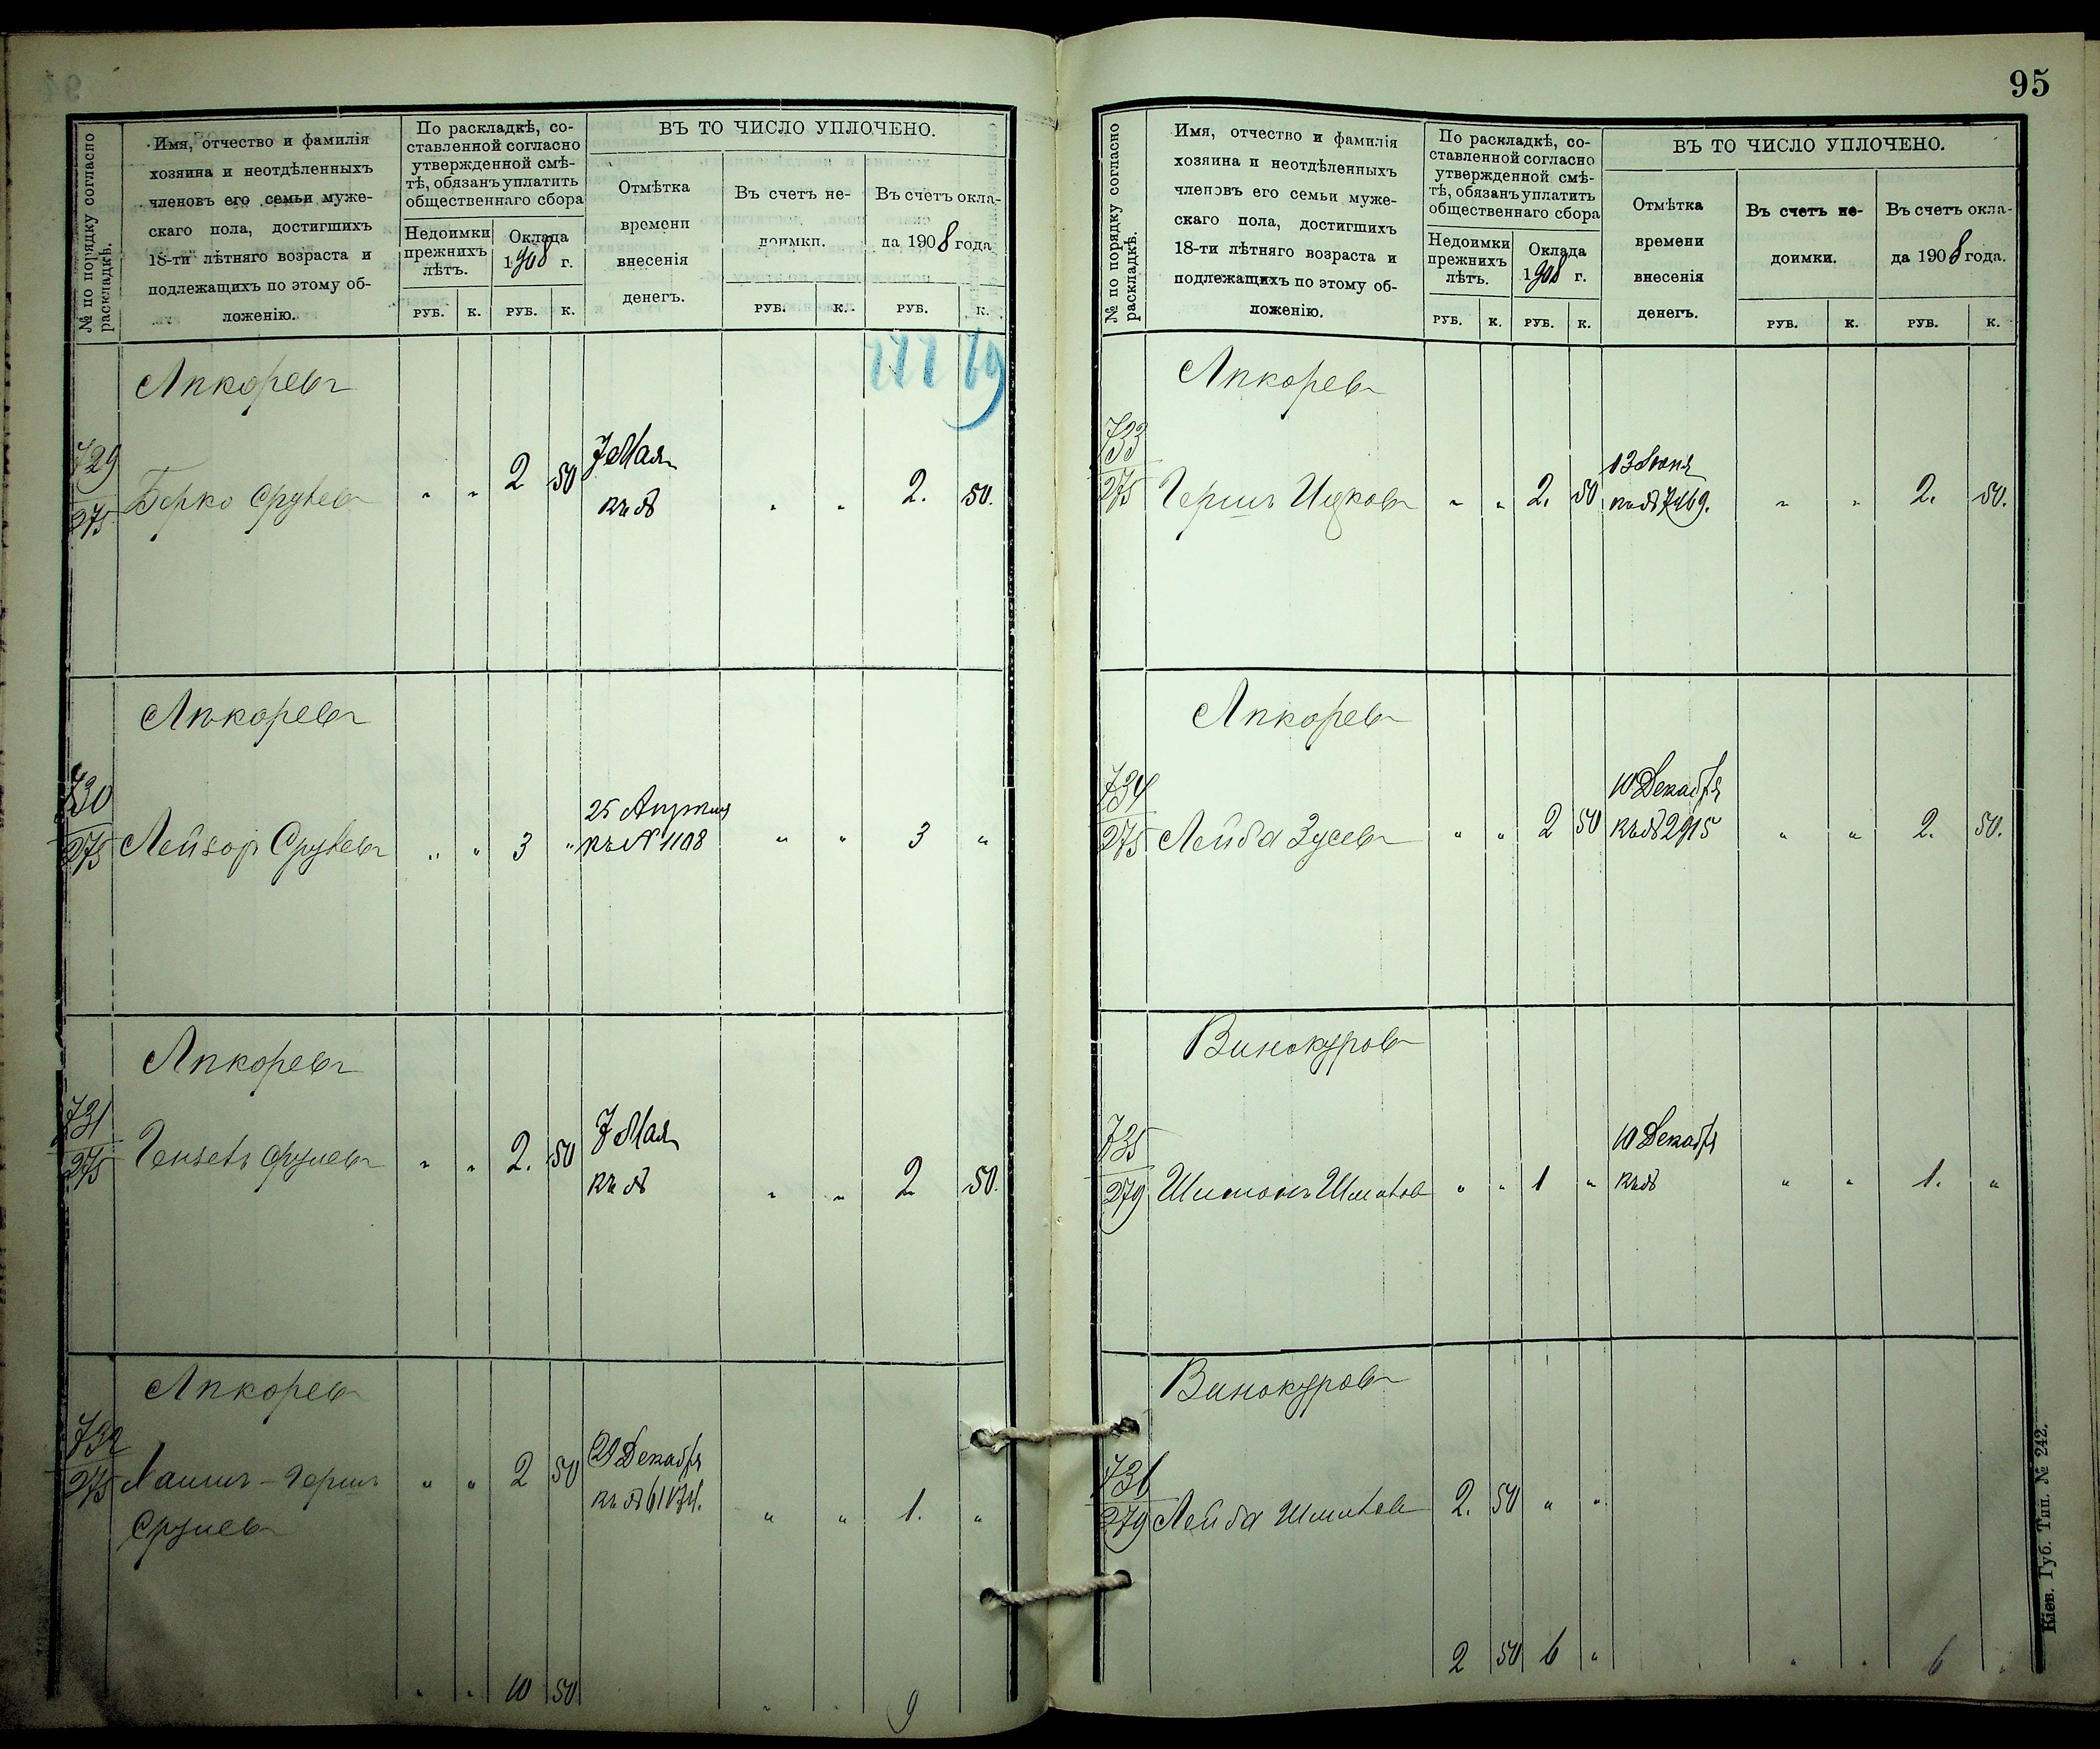 95
№ по порядку согласно раскладкѣ.
Имя, отчество и фамилія хозяина и неотдѣленныхъ членовъ его семьи мужескаго пола, достигшихъ 18-ти лѣтняго возраста и подлежащихъ по этому обложенію.
По раскладкѣ, составленной согласно утвержденной смѣтѣ, обязанъ уплатить общественнаго сбора
Недоимки прежнихъ лѣтъ.
Оклада 1908 г.
РУБ. К. РУБ. К.
ВЪ ТО ЧИСЛО УПЛОЧЕНО.
Отмѣтка времени внесенія денегъ.
Въ счетъ недоимки.
Въ счетъ оклада 1908 года
РУБ. К. РУБ. К.
Апкоревъ
729
275 Берко Срулев " " 2 50 7 Мая къ № " " 2. 50.
Апкоревъ
730
275 Лейзор Срулев " " 3 " 25 къ № 1108 " " 3 "
Апкоревъ
731
275 Срулев " " 2. 50 7 Мая къ № " " 2 50.
Апкоревъ
732
275 Хаимъ-Герш Срулев " " 2 50 29 Декабря къ № " " 1. "
" " 10 50 " " 9
№ по порядку согласно раскладкѣ.
Имя, отчество и фамилія хозяина и неотдѣленныхъ членовъ его семьи мужескаго пола, достигшихъ 18-ти лѣтняго возраста и подлежащихъ по этому обложенію.
По раскладкѣ, составленной согласно утвержденной смѣтѣ, обязанъ уплатить общественнаго сбора
Недоимки прежнихъ лѣтъ.
Оклада 1908 г.
РУБ. К. РУБ. К.
ВЪ ТО ЧИСЛО УПЛОЧЕНО.
Отмѣтка времени внесенія денегъ.
Въ счетъ недоимки.
Въ счетъ оклада 1908 года.
РУБ. К. РУБ. К.
Апкорев
733
275 Гершъ Ицков " " 2. 50 13 Іюня къ № 7469. " " 2. 50.
Апкорев
734
275 Лейба Зусев " " 2 50 10 Декабря къ № 2915 " " 2. 50.
Винокуров
735
279 Шимонъ Шмулев " " 1 " 10 Декабря къ № " " 1. "
Винокуров
736
279 Лейба Шмулев 2. 50 " "
2 50 6 " " " 6 "
Кіев. Губ. Тип. № 242.